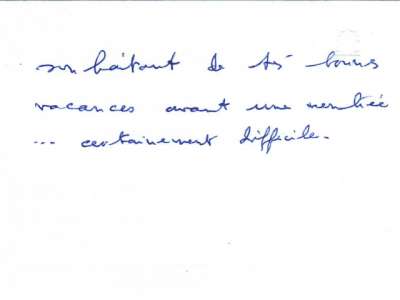 souhaitant de très bonnes
vacances avant une rentrée
... certainement difficile.